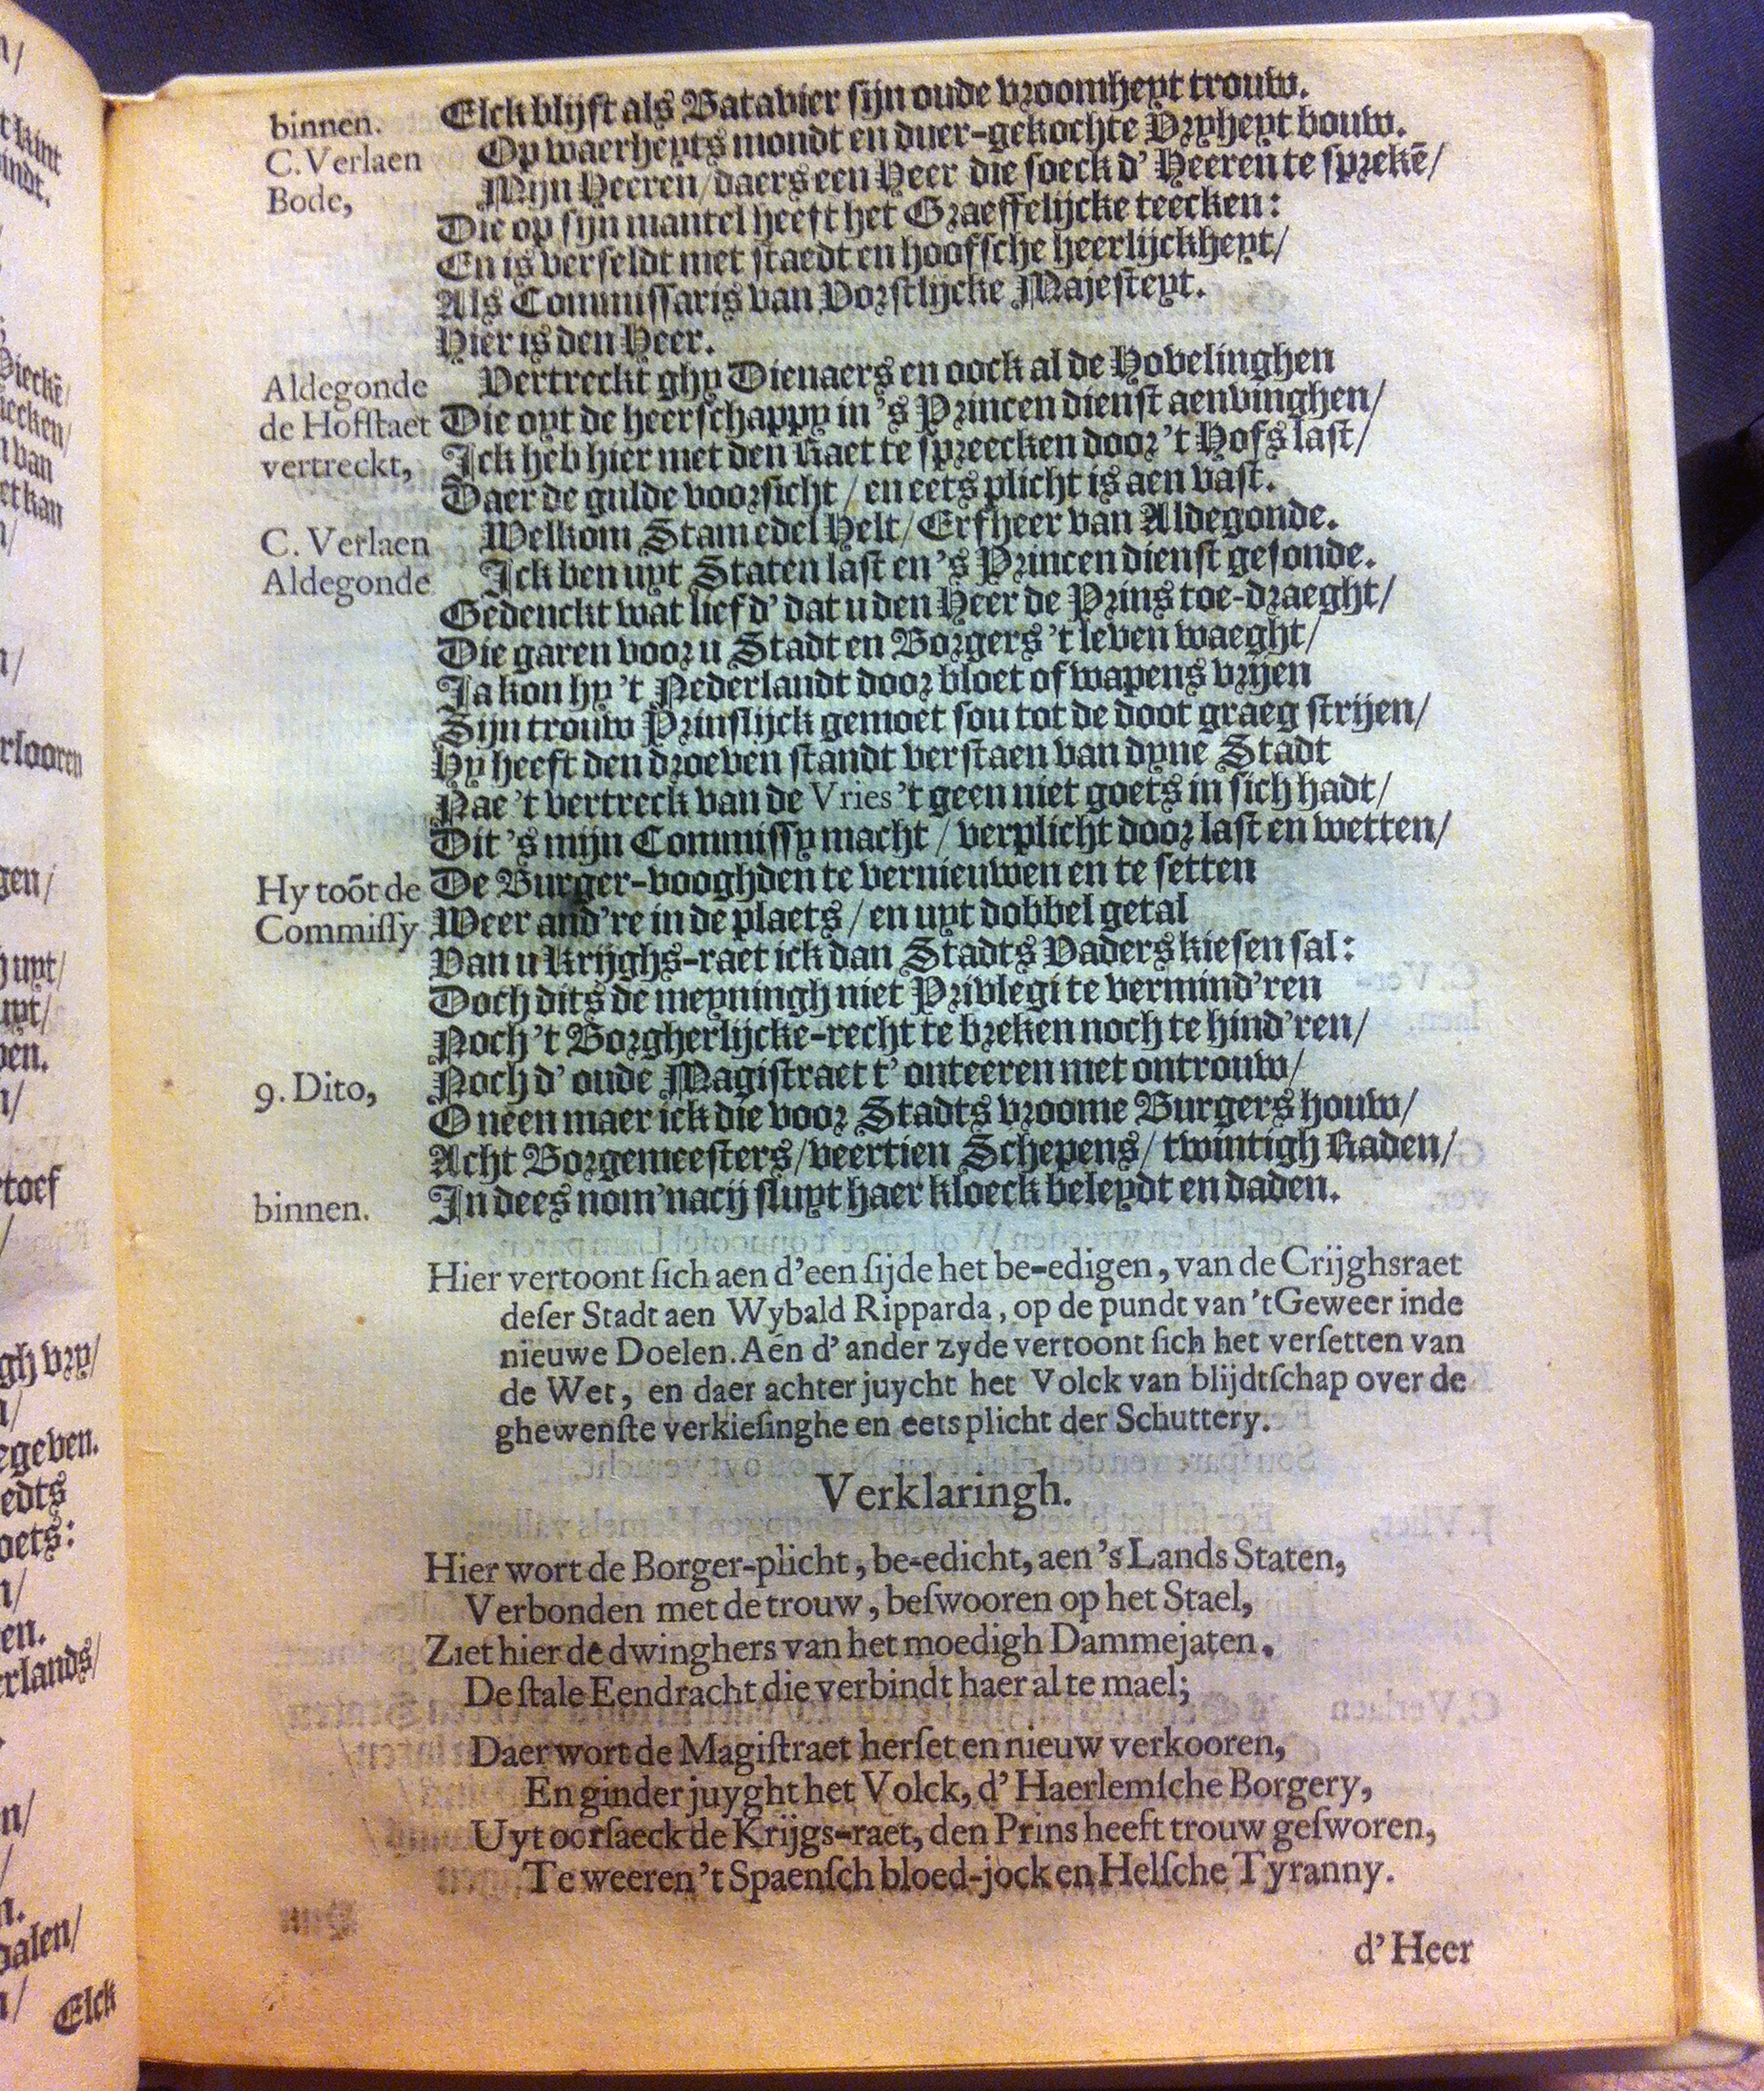 Elck blijft als Batavier sijn oude vroomheyt trouw.
binnen. Op waerheyts mondt en duer-gekochte Vryheyt bouw.
C. Verlaen
Bode, Mijn Heeren/daers een Heer die soeck d' Heeren te sprekē/
Die op sijn mantel heeft het Graeffelijcke teecken:
En is verseldt met staedt en hoofsche heerlijckheyt/
Als Commissaris van Vorstlijcke Majesteyt.
Hier is den Heer.
Aldegonde Vertreckt ghy Dienaers en oock al de Hovelinghen
de Hofstaet Die oyt de heerschappy in 's Princen dienst aenvinghen/
vertreckt, Ick heb hier met den Raet te spreecken door 't Hofs last/
Daer de gulde voorsicht / en eets plicht is aen vast.
C. Verlaen Welkom Stamedel Helt/ Erfheer van Aldegonde.
Aldegonde Ick ben uyt Staten last en 's Princen dienst gesonde.
Gedenckt wat lief d' dat u den Heer de Prins toe-draeght/
Die garen voor u Stadt en Borgers 't leven waeght/
Ja kon hy 't Nederlandt door bloet of wapens vryen
Sijn trouw Prinslijck gemoet sou tot de doot graeg strijen/
Hy heeft den droeven standt verstaen van dyne Stadt
Nae 't vertreck van de Vries 't geen niet goets in sich hadt/
Dit 's mijn Commissy macht / verplicht door last en wetten/
Hy toōt de De Burger-vooghden te vernieuwen en te setten
Commissy Weer and're in de plaets / en uyt dobbel getal
Van u Krijghs-raet ick dan Stadts Vaders kiesen sal:
Doch dits de meyningh niet Privlegi te vermind'ren
Noch 't Borgherlijcke-recht te breken noch te hind'ren/
9. Dito, Noch d' oude Magistraet t' onteeren met ontrouw/
O neen maer ick die voor Stadts vroome Burgers houw/
Acht Borgemeesters/veertien Schepens/ twintigh Raden/
binnen. In dees nom'nacij sluyt haer kloeck beleydt en daden.
Hier vertoont sich aen d'een sijde het be-edigen, van de Crijghsraet
deser Stadt aen Wybald Ripparda, op de pundt van 't Geweer inde
nieuwe Doelen. Aen d' ander zyde vertoont sich het versetten van
de Wet, en daer achter juycht het Volck van blijdtschap over de
ghewenste verkiesinghe en eets plicht der Schuttery.
Verklaringh.
Hier wort de Borger-plicht, be-edicht, aen 's Lands Staten,
Verbonden met de trouw, beswooren op het Stael,
Ziet hier de dwinghers van het moedigh Dammejaten.
De stale Eendracht die verbindt haer al te mael;
Daer wort de Magistraet herset en nieuw verkooren,
En ginder juyght het Volck, d' Haerlemsche Borgery,
Uyt oorsaeck de Krijgs-raet, den Prins heeft trouw gesworen,
Te weeren 't Spaensch bloed-jock en Helsche Tyranny.
d' Heer
Elck